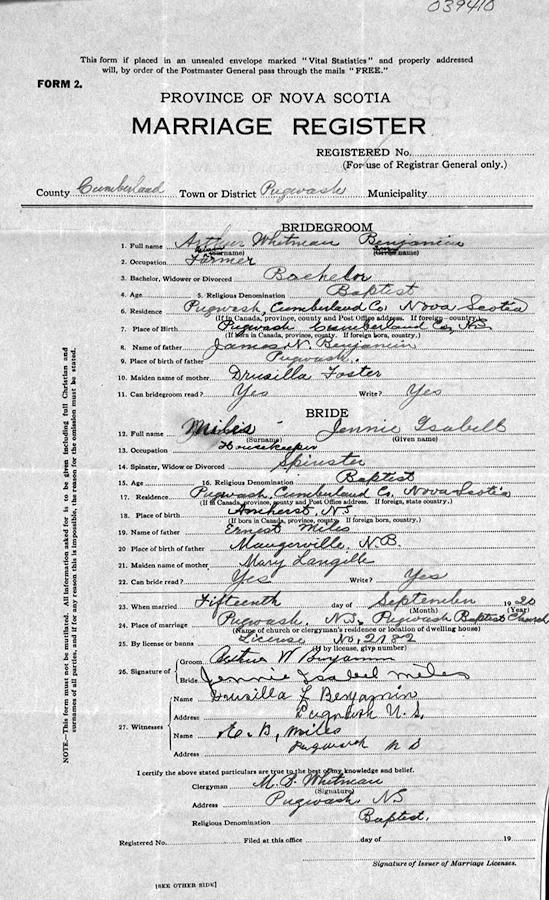 039410
This form if placed in an unsealed envelope marked "Vital Statistics" and properly addressed
will, by order of the Postmaster General pass through the mails "FREE."
FORM 2.
PROVINCE OF NOVA SCOTIA
MARRIAGE REGISTER
REGISTERED No.
(For use of Registrar General only.)
County Cumberland Town or District Pugwash Municipality
BRIDEGROOM
1. Full name Arthur Whitman Benjamin
(Surname) (Given name)
2. Occupation Farmer
3. Bachelor, Widower or Divorced Bachelor
4. Age 5. Religious Denomination Baptist
6. Residence Pugwash, Cumberland Co. Nova Scotia
(If in Canada, province, county and Post Office address. If foreign country.)
7. Place of Birth Pugwash Cumberland Co, N.S
(If born in Canada, province, county. If foreign born, country.)
8. Name of father James N. Benjamin
9. Place of birth of father Pugwash.
10. Maiden name of mother Drusilla Foster
11. Can bridegroom read? Yes Write? Yes
BRIDE
12. Full name Miles Jennie Isabell
(Surname) (Given name)
13. Occupation Housekeeper
14. Spinster, Widow or Divorced Spinster
15. Age 16. Religious Denomination Baptist
17. Residence Pugwash, Cumberland Co, Nova Scotia
(If in Canada, province, county and Post Office address. If foreign, state country.)
18. Place of birth Amherst, N.S
(If born in Canada, province, county. If foreign born, country.)
19. Name of father Ernest Miles
20 Place of birth of father Maugerville, N.B.
21. Maiden name of mother Mary Langille
22. Can bride read? Yes Write? Yes
23. When married Fifteenth day of September 1920
(Month) (Year)
24. Place of marriage Pugwash, N.S. Pugwash Baptist Church
(Name of church or clergyman's residence or location of dwelling house)
25. By license or banns License No, 2782
(If by license, give number)
26. Signature of
Groom Arthur W Benjamin
Bride Jennie Isabel Miles
27. Witnesses
Name Drusilla L Benjamin
Address Pugwash N.S.
Name B, Miles
Address Pugwash N S
I certify the above stated particulars are true to the best of my knowledge and belief.
Clergyman Whitman
(Signature)
Address Pugwash, N.S
Religious Denomination Baptist.
Registered No. Filed at this office day of 19
Signature of Issuer of Marriage Licenses.
[SEE OTHER SIDE]
NOTE.—This form must not be mutilated. All information asked for is to be given including full Christian and
surnames of all parties, and if for any reason this is impossible, the reason for the omission must be stated.